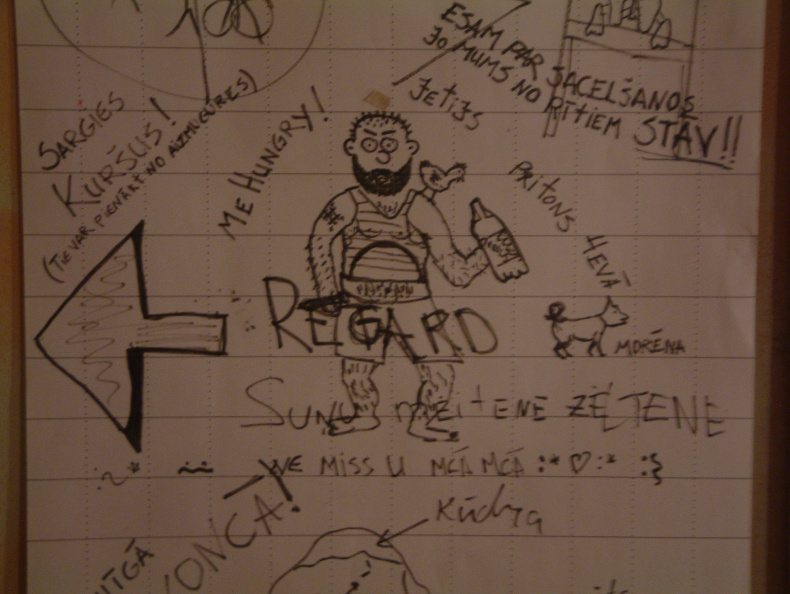 ESAM PAR JACELŠANOS
JO MUMS NO RĪTIEM STĀV!!
JETIJS
SARGIES
KURŠUS!
(TIE VAR PIENĀKT NO AIZMUGURES)
ME HUNGRY!
PRITONS HEVĀ
REGARD
MORĒNA
SUŅU MEITENE ZĒTENE
WE MISS U MČĀ MČĀ :* ♡ :* :}
KONCĀ!
Kūdra